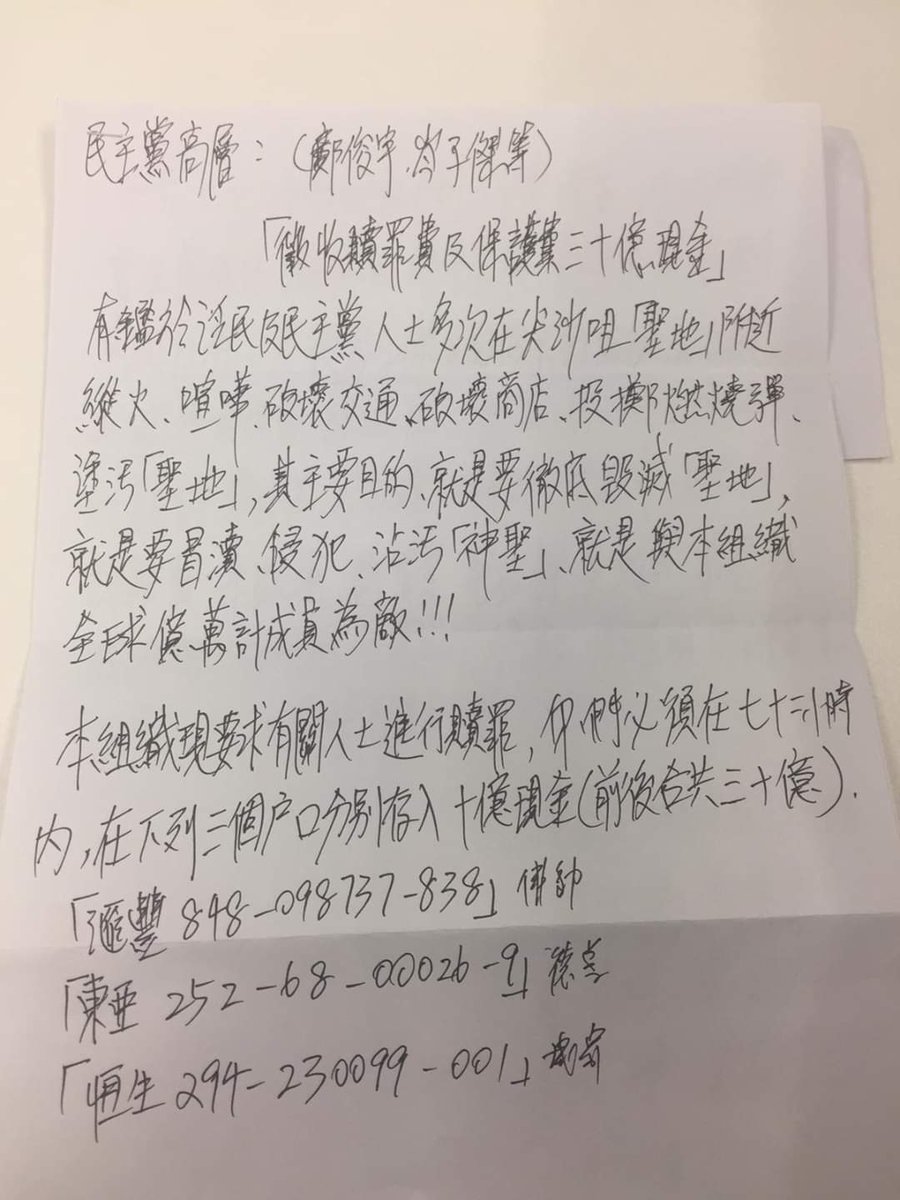 民主黨高層：（鄺俊宇.岑子傑等）
「徵收贖罪費及保護費三十億現金」
有鑑於泛民及民主黨人士多次在尖沙咀「聖地」附近
縱火、喧嘩、破壞交通、破壞商店、投擲燃燒彈、
塗污「聖地」，其主要目的、就是要徹底毀滅「聖地」，
就是要冒瀆、侵犯、沾污「神聖」、就是與本組織
全球億萬計成員為敵!!!
本組織現要求有關人士進行贖罪，你們必須在七十二小時
內，在下列三個户口分別存入十億現金（前後合共三十億）.
「滙豐 848-098737-838」
「東亜 252-68-00026-9」
「恒生 294-230099-001」